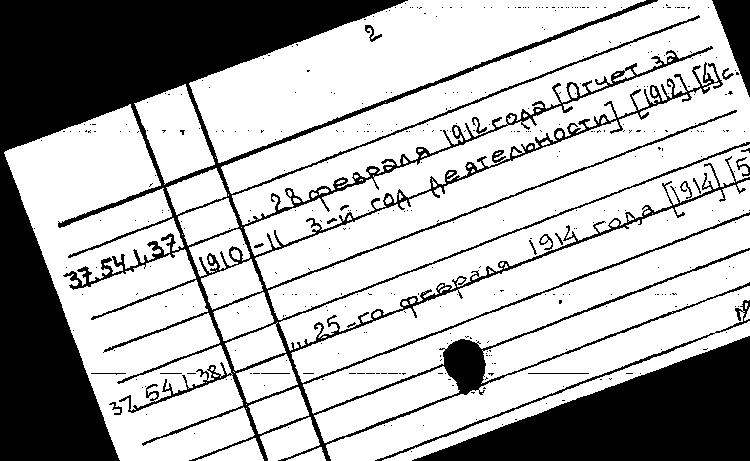 2
... 28 февраля 1912 года [Отчет за
37.54.1.37. 1910-11 3-й год деятельности] [1912] [4] с.
... 25-го февраля 1914 года [1914]. [5
37.54.1.38.